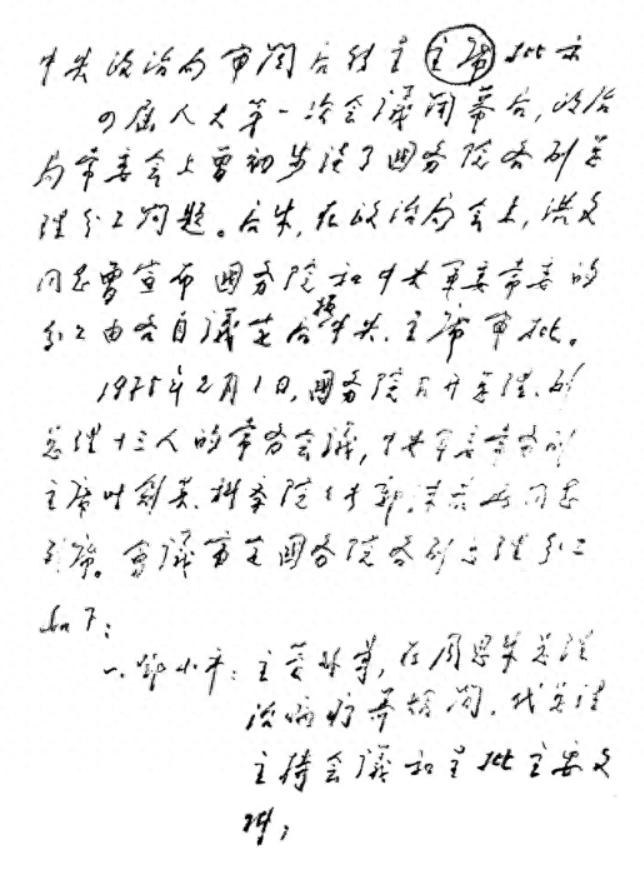 中央政治局审阅后转呈主席批示
四届人大第一次会議閉幕后,政治
局常委会上曾初步谈了國务院各副总
理分工问题。后来,在政治局会上,洪文
同志曾宣布國务院和中央军委常委的
分工由各自議定后报中央、主席审批。
1975年2月1日,國务院召开总理、副
总理十三人的常务会議,中央军委常务副
主席叶剑英、科学院郭沫若两同志
列席。會議审定國务院各副总理分工
如下:
一、鄧小平:主管外事,在周恩来总理
治病疗养期间,代总理
主持会議和呈批主要文
件;